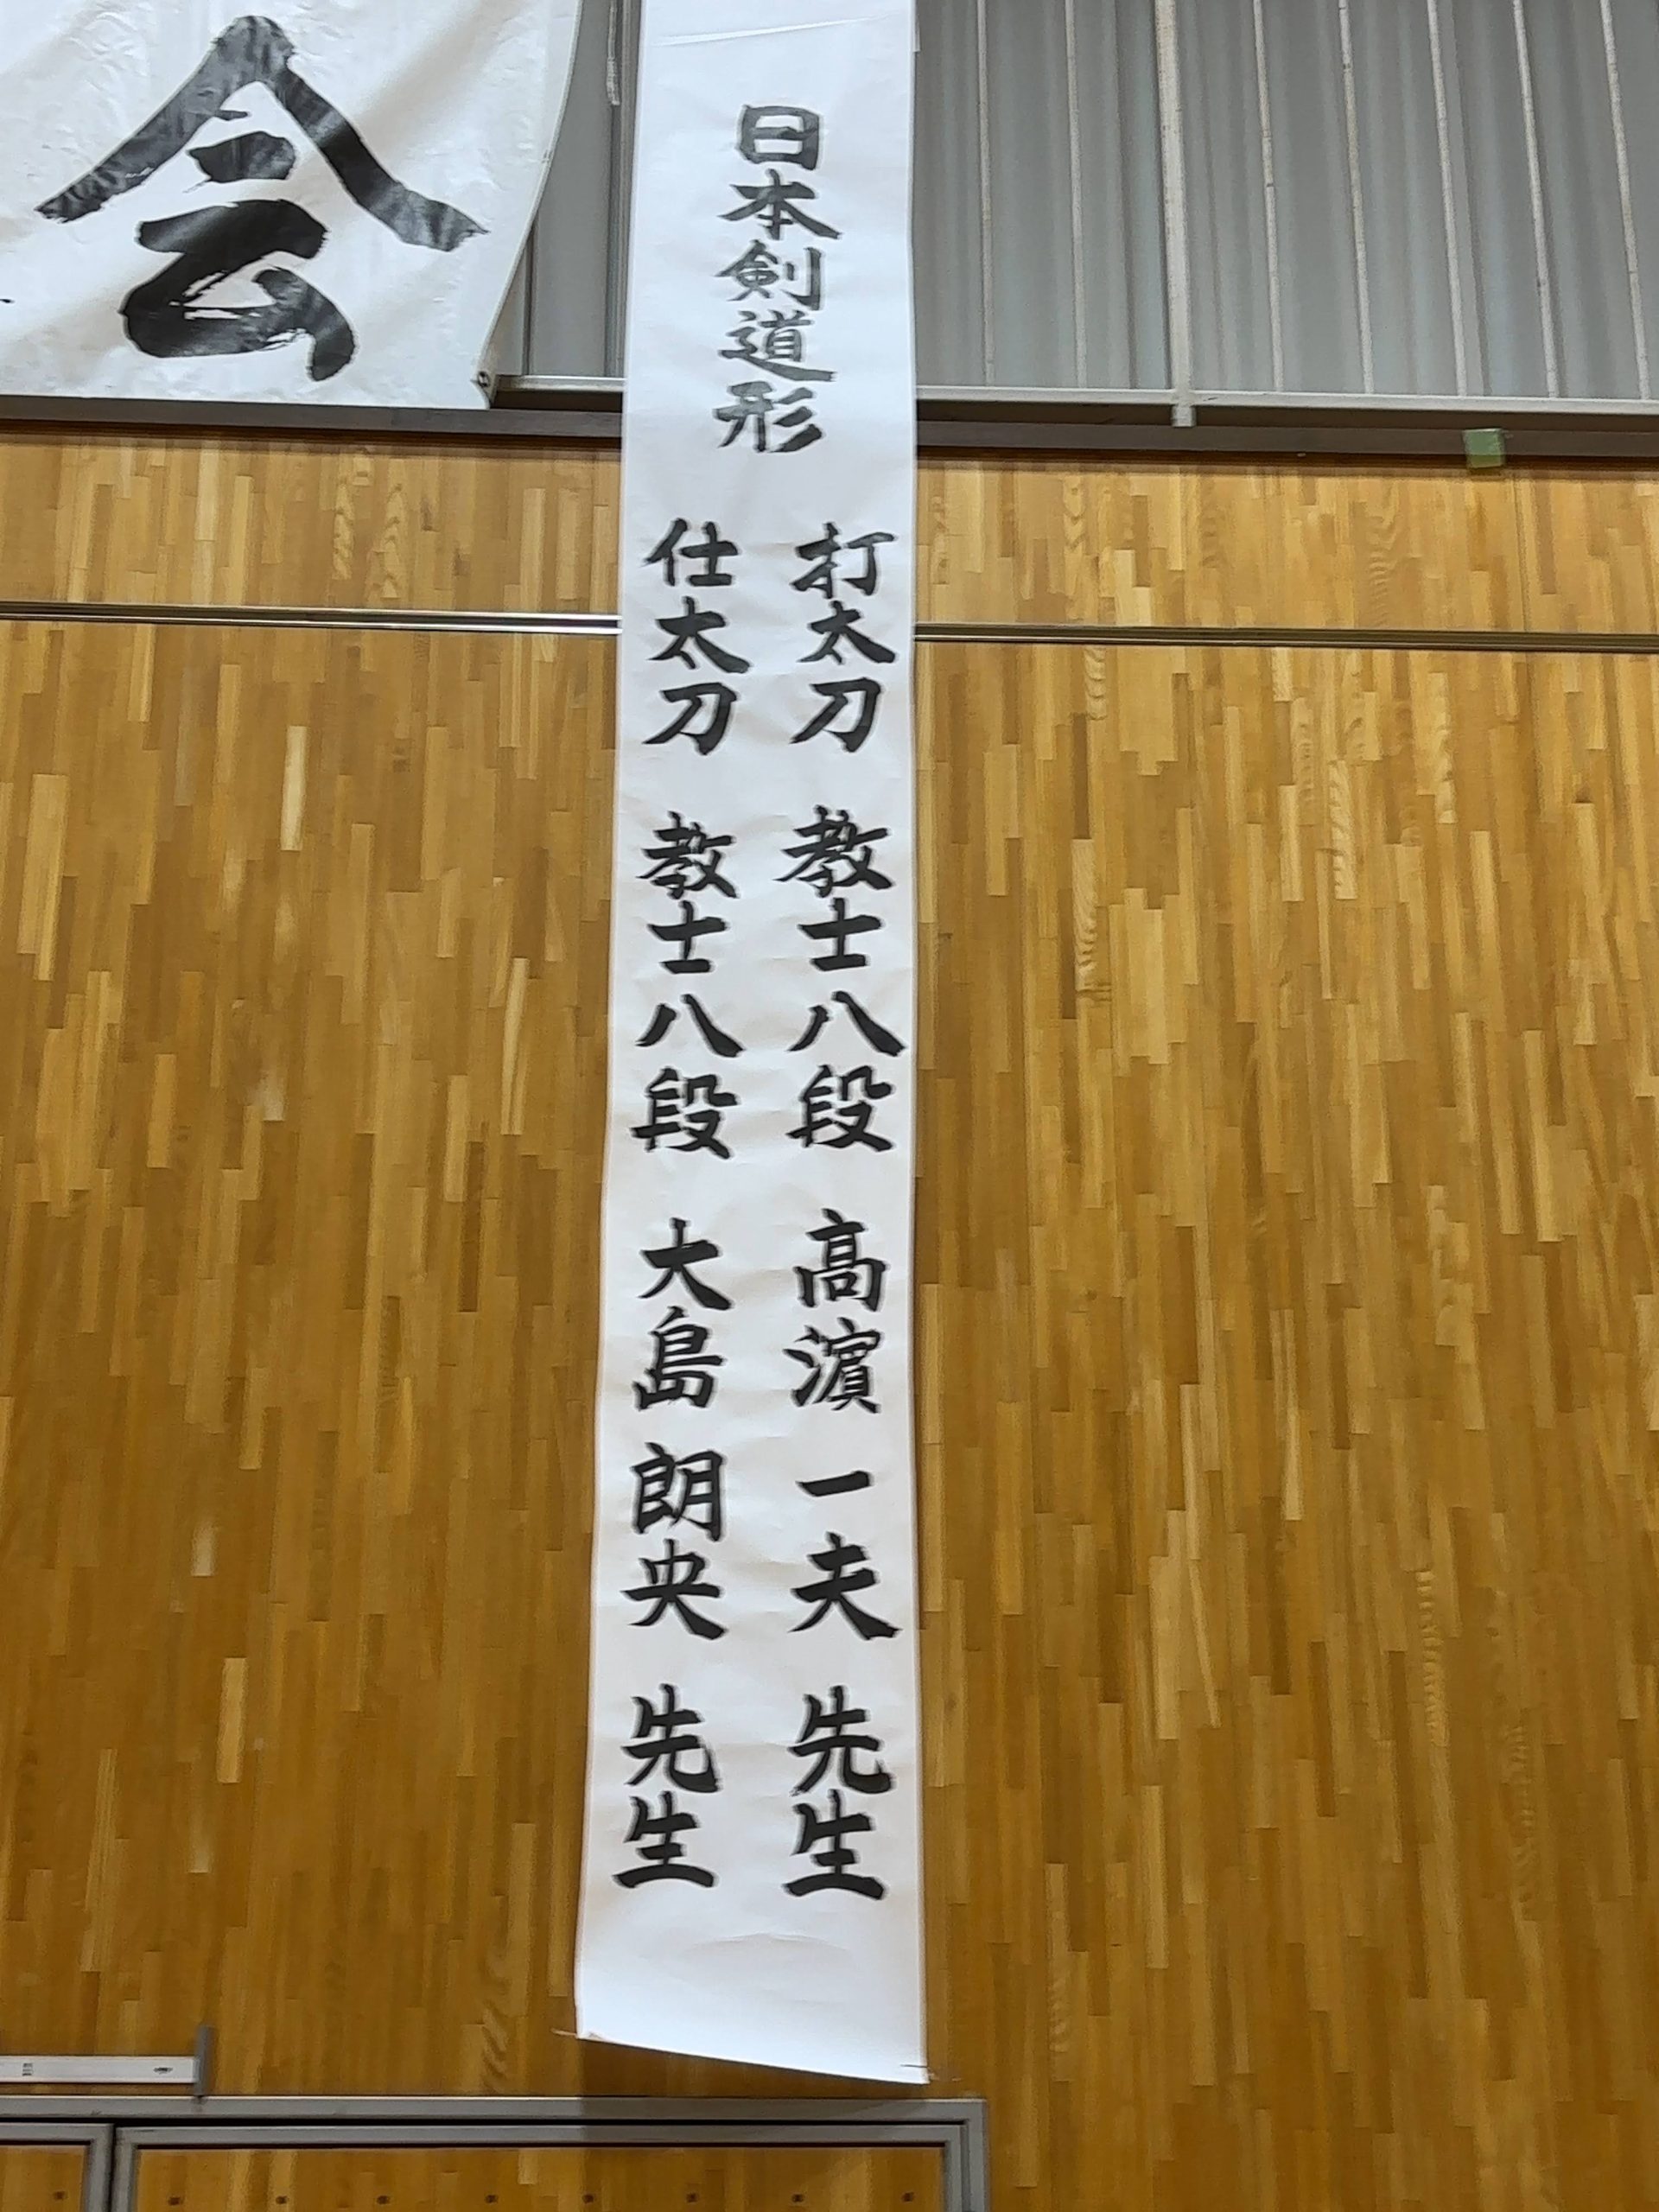 日本剣道形
打太刀 教士八段 高濵一夫 先生
仕太刀 教士八段 大島朗央 先生
会